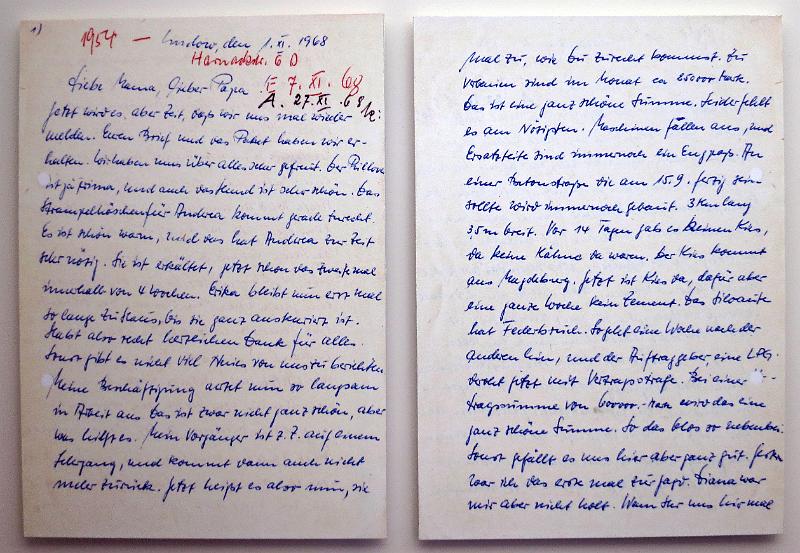 1)
1954 — Lüchow, den 1. XI. 1968
Harnackstr. 6 D
Liebe Mama, lieber Papa E 7. XI. 68
A. 27. XI. 68
Jetzt wird es aber Zeit, daß wir uns mal wieder
melden. Euren Brief und das Paket haben wir er-
halten. Wir haben uns über alles sehr gefreut. Der Pullover
ist ja prima, und auch das Hemd ist sehr schön. Das
Strampelhöschen für Andrea kommt gerade zurecht.
Es ist schön warm, und das hat Andrea zur Zeit
sehr nötig. Sie ist erkältet, jetzt schon das zweite mal
innerhalb von 4 Wochen. Erika bleibt nun erst mal
so lange zu Haus, bis sie ganz auskuriert ist.
Habt also recht herzlichen Dank für alles.
Sonst gibt es nicht viel Neues von uns zu berichten
Meine Beschäftigung artet nun so langsam
in Arbeit aus. Das ist zwar nicht ganz schön, aber
was hilft es. Mein Vorgänger ist z. Z. auf einem
Lehrgang, und kommt dann auch nicht
mehr zurück. Jetzt heißt es also nun, sie
mal zu, wie Du zurecht kommst. Zu
verbauen sind im Monat ca Mark.
Das ist eine ganz schöne Summe. Leider fehlt
es am Nötigsten. Maschinen fallen aus, und
Ersatzteile sind immernoch ein Engpaß. An
einer Betonstraße die am 15.9. fertig sein
sollte wird immernoch gebaut. 3 Km lang
3,5 m breit. Vor 14 Tagen gab es keinen Kies,
da keine Kähne da waren. Der Kies kommt
aus Magdeburg. Jetzt ist Kies da, dafür aber
eine ganze Woche kein Zement. Das Siloauto
hat Federbruch. So geht eine Woche nach der
anderen hin, und der Auftraggeber, eine LPG
droht jetzt mit Vertragsstrafe. Bei einer
-tragssumme von 60000.- Mark wird das eine
ganz schöne Summe. So das blos so nebenbei.
Sonst gefällt es uns hier aber ganz gut. Gestern
war ich das erste mal zur Jagd. Diana war
mir aber nicht hold. Wenn Ihr uns hier mal